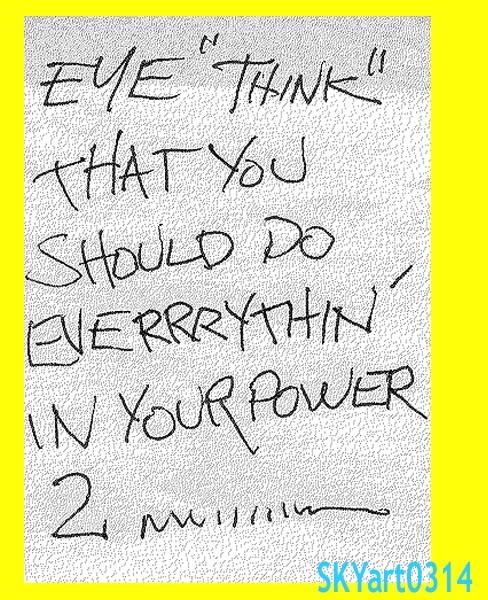 EYE "THINK"
THAT YOU
SHOULD DO
EVERRRYTHIN'
IN YOUR POWER
2
SKYart0314